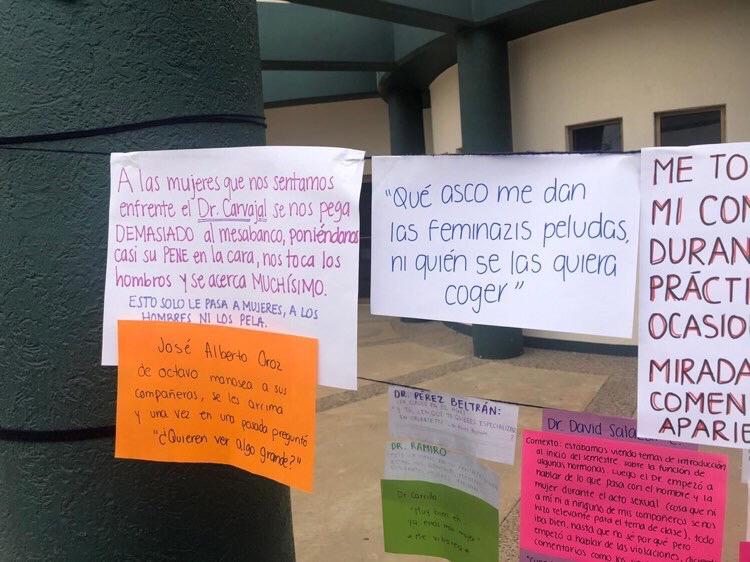 A las mujeres que nos sentamos
enfrente el Dr. Carvajal se nos pega
DEMASIADO al mesabanco, poniéndonos
casi su PENE en la cara, nos toca los
hombros y se acerca MUCHÍSIMO.
ESTO SOLO LE PASA A MUJERES, A LOS
HOMBRES NI LOS PELA.
José Alberto Oroz
de octavo manosea a sus
compañeras, se les arrima
y una vez en una posada preguntó
"¿Quieren ver algo grande?"
"Qué asco me dan
las feminazis peludas,
ni quién se las quiera
coger"
ME TO
MI CON
DURAN
PRÁCTI
OCASIO
MIRADA
COMEN
APARIE
DR. PEREZ BELTRÁN:
DR. RAMIRO
Dr Carrillo
"Muy bien eh
ya eres más mujer"
Dr. David
Contexto: estábamos viendo temas de introducción
al inicio del semestre, sobre la función de
algunas hormonas. Luego el Dr empezó a
hablar de lo que pasa con el hombre y la
mujer durante el acto sexual (cosa que ni
a mí ni a ninguno de mis compañeros se nos
hizo relevante para el tema de clase), todo
iba bien, hasta que no se por qué pero
empezó a hablar de las violaciones,
comentarios como